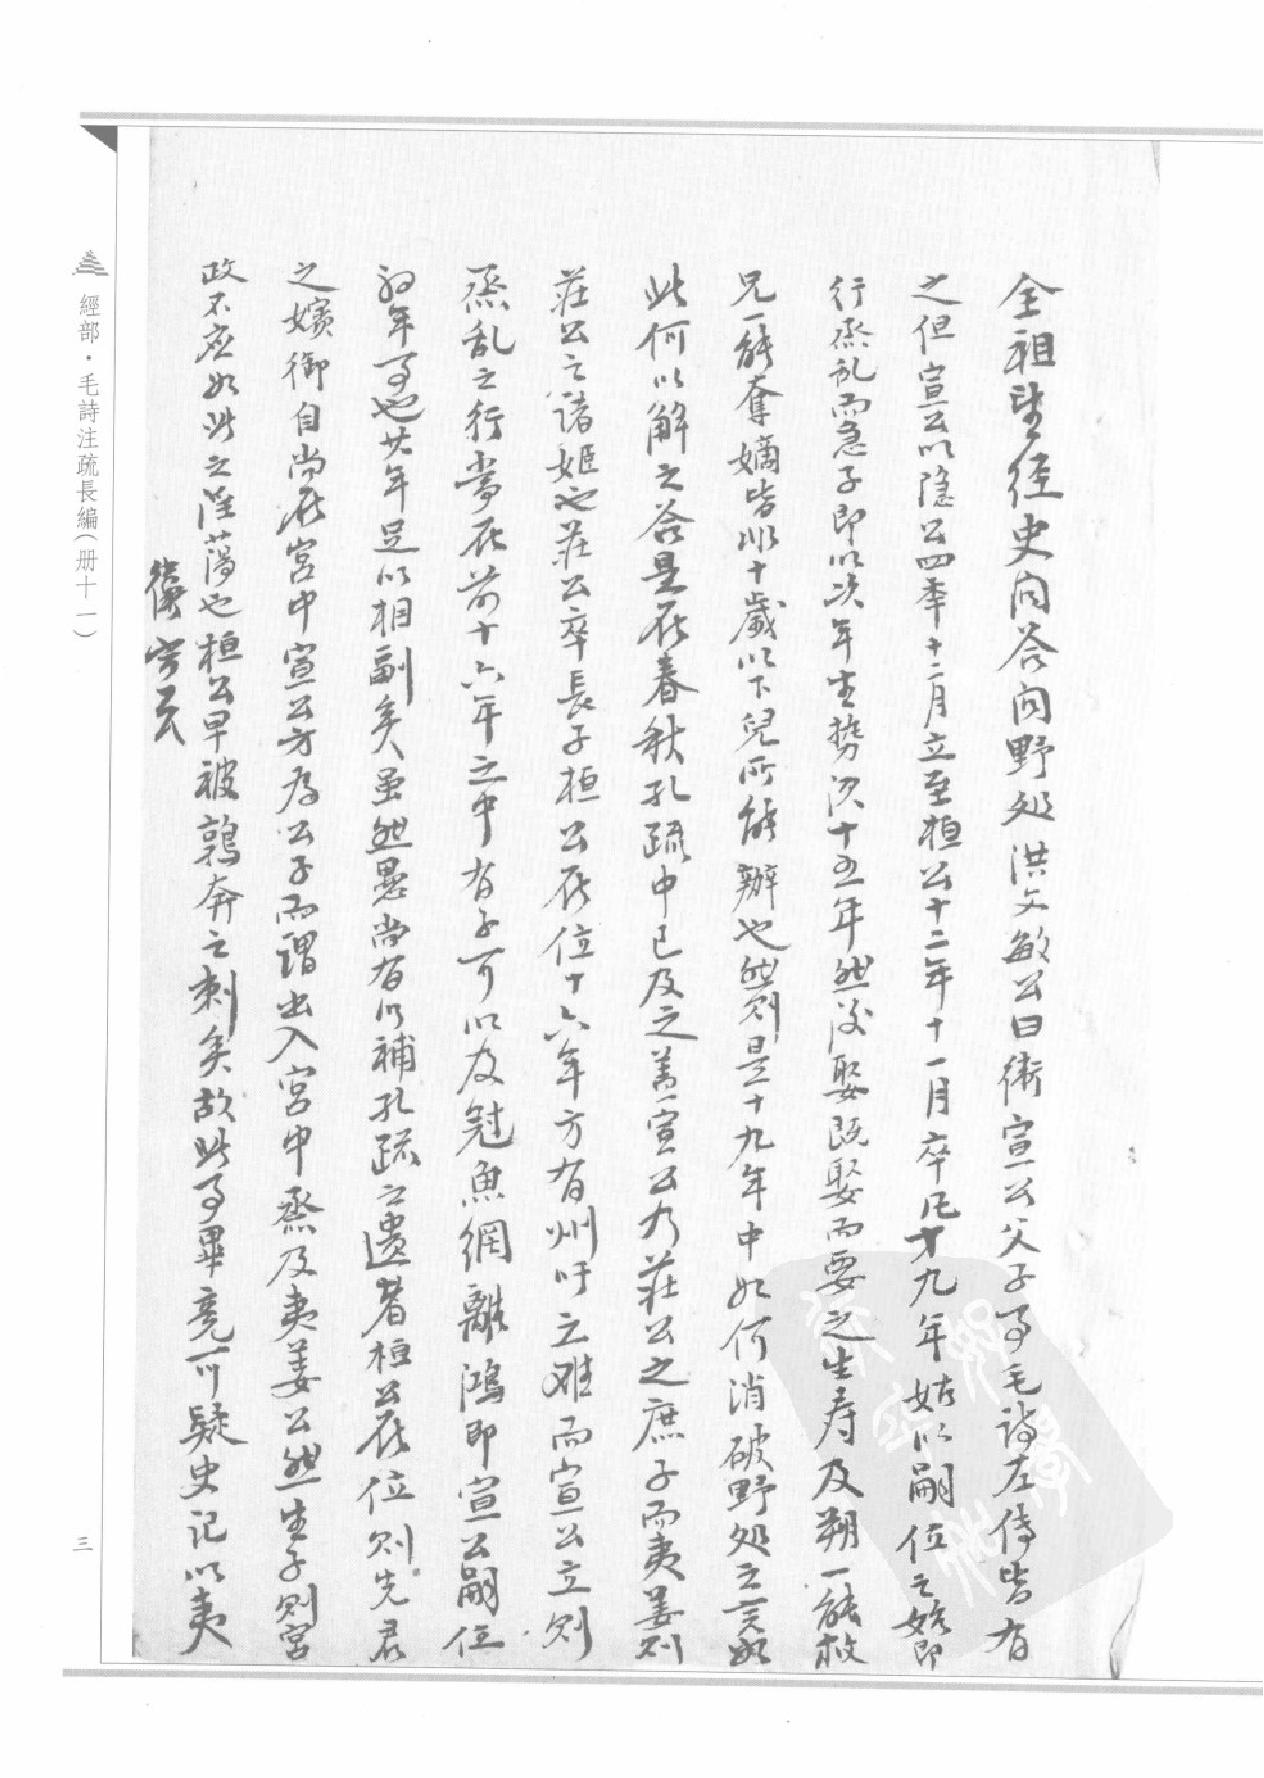 全祖望經史问荅问野处洪文敏公曰衛宣公父子事毛詩左傳皆有
之但宣公以隱公四年十二月立至桓公十二年十一月卒凡十九年姑以嗣位之始即
行烝乱而急子即以次年生勢須十五年然後娶既娶而要之生寿及朔一能救
兄一能奪嫡皆非十歲以下兒所能辦也然则是十九年中如何消破野处之言如
此何以解之荅是在春秋孔疏中已及之盖宣公乃莊公之庶子而夷姜则
莊公之諸姬也莊公卒長子桓公在位十六年方有州吁之难而宣公立则
烝乱之行當在前十六年之中有子可以及冠魚網離鴻即宣公嗣位
初年事也廿年足以相副矣虽然是尚有以補孔疏之遺者桓公在位则先君
之嬪御自尚在宮中宣公方為公子而謂出入宮中烝及夷姜公然生子则宮
政不应如此之淫蕩也桓公早被鶉奔之刺矣故此事畢竟可疑史記以夷
經部·毛詩注疏長編(册十一)
三